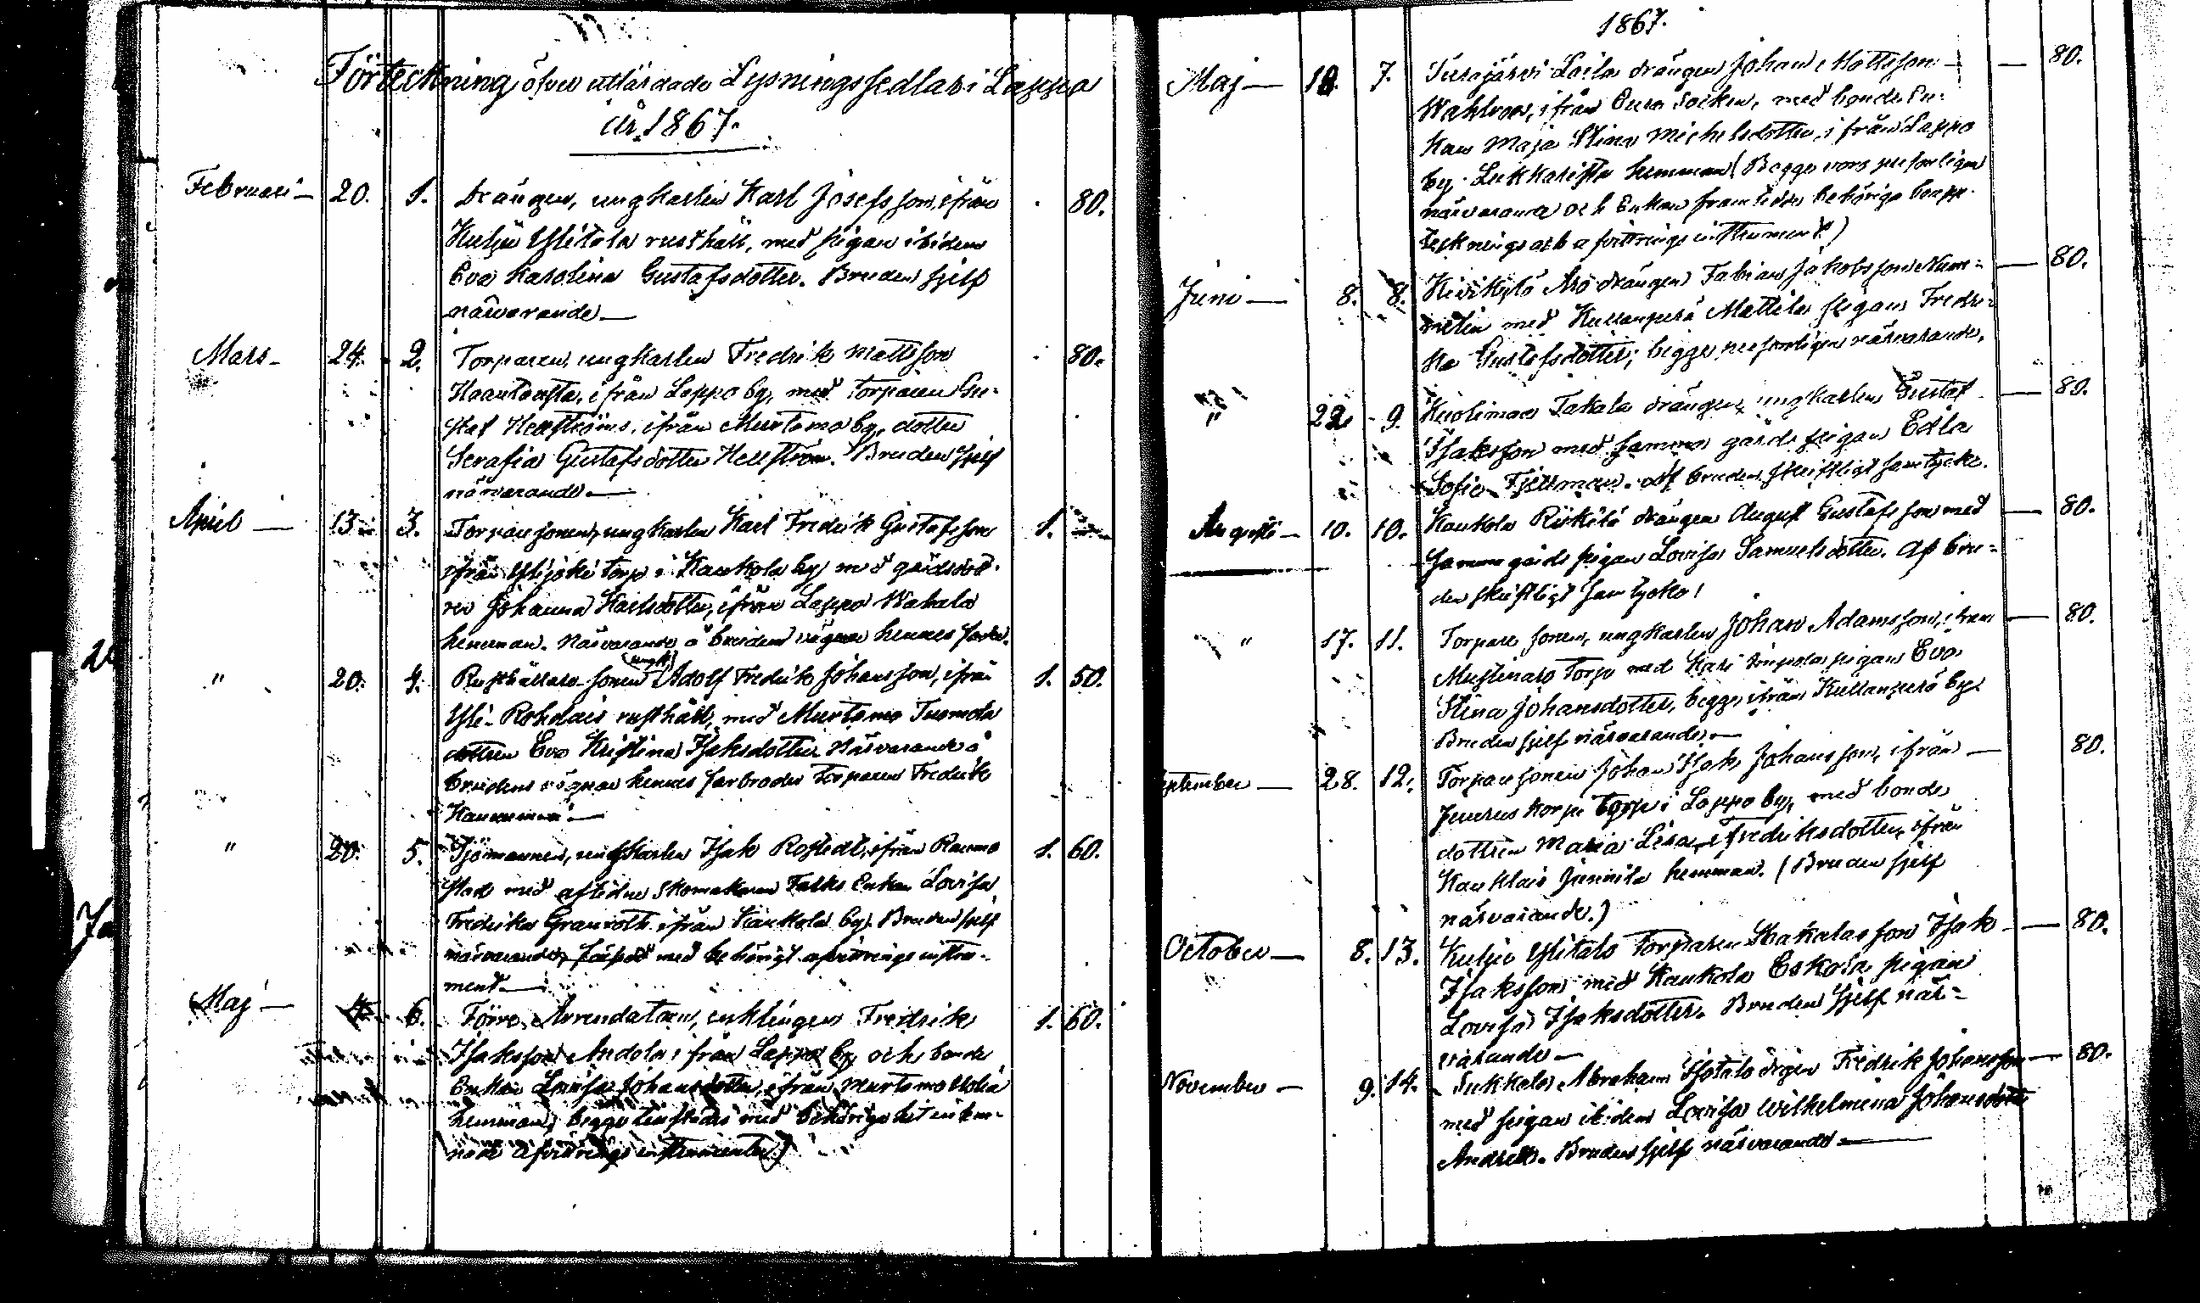 Förteckning öfver utfärdade Lysningssedlar i Lappo
år 1867.
Februari — 20. 1. Drängen, ungkarlen Karl Josefsson, ifrån . 80.
Kulju Ylitalo rusthåll, med pigan ibidem
Eva Karolina Gustafsdotter. Bruden sjelf
närvarande. —
Mars — 24. 2. Torparen, ungkarlen Fredrik Mattsson . 80.
ifrån Lappo by, med torparen Gu-
staf Hellströms, ifrån Murtamo by, dotter
Serafia Gustafsdotter Hellström. Bruden sjelf
närvarande. —
April — 13. 3. Torparesonen, ungkarlen Karl Fredrik Gustafsson 1. —
ifrån Ylijoki torp i Kaukola by med gårdsdott-
ren Johanna Karlsdotter, ifrån Lappo Wahala
hemman. Närvarande å brudens vägnar hennes
" 20. 4. Rusthållare sonen (ungk) Adolf Fredrik Johansson, ifrån 1. 50.
Yli-Rohdais rusthåll, med Murtamo Tuomola
dottren Eva Kristina Isaksdotter. Närvarande å
brudens vägnar hennes farbroder Torparen Fredrik
" 20. 5. Sjömannen, ungkarlen Isak Rostedt, ifrån Raumo 1. 60.
stad med aflidne skomakaren Falks Enkan Lovisa
Fredrika Granroth ifrån Kaukola by. Bruden sjelf
närvarande, försedd med behörigt afvittrings instru-
ment. —
Maj — 4. 6. Förre Arrendatoren, enklingen Fredrik 1. 60.
Isaksson Andola ifrån Lappo by och bonde
Enkan Lovisa Johansdotter, ifrån Murtamo
hemman, begge försedde med behöriga hit inkom-
nade afvittrings instrumenter.)
1867.
Maj — 18. 7. Turajärvi Laila drängen Johan Mattsson — 80.
Wahlroos, ifrån Eura Socken, med bonde En-
kan Maja Stina Michelsdotter, ifrån Lappo
by Lukkarista hemman (Begge voro personligen
närvarande och Enkan framtedde behöriga boupp-
tecknings och afvittrings instrument.)
Juni — 8. 8. Kivikylä Aro drängen Fabian Jakobsson Num-
— 80.
melin med Kullanperä Mattila pigan Fredri-
ka Gustafsdotter; begge personligen närvarande.
" 22. 9. Kuolimaa Takala drängen, ungkarlen Gustaf — 80.
Isaksson med samma gårds pigan Edla
Sofia Fjellman. Af bruden skriftligt samtycke.
Augusti — 10. 10. Kaukola Riikilä drängen August Gustafsson med — 80.
samma gårds pigan Lovisa Samuelsdotter. Af bru-
den skriftligt samtycke!
" 17. 11. Torpare sonen, ungkarlen Johan Adamsson, ifrån — 80.
torp med pigan Eva
Stina Johansdotter, begge ifrån Kullanperä by.
Bruden sjelf närvarande. —
September — 28. 12. Torparesonen Johan Isak Johansson, ifrån — 80.
torp i Lappo by, med bonde
dottren Maria Lisa Fredriksdotter, ifrån
Kauklais Junnila hemman. (Bruden sjelf
närvarande.)
October — 8. 13. Kulju Ylitalo Torparen son Isak — 80.
Isaksson med Kaukola Eskola pigan
Lovisa Isaksdotter. Bruden sjelf när-
varande —
November — 9. 14. Sukkala Abraham drgen Fredrik Johansson — 80.
med pigan ibidem Lovisa Wilhelmina Johansdotter
Bruden sjelf närvarande —